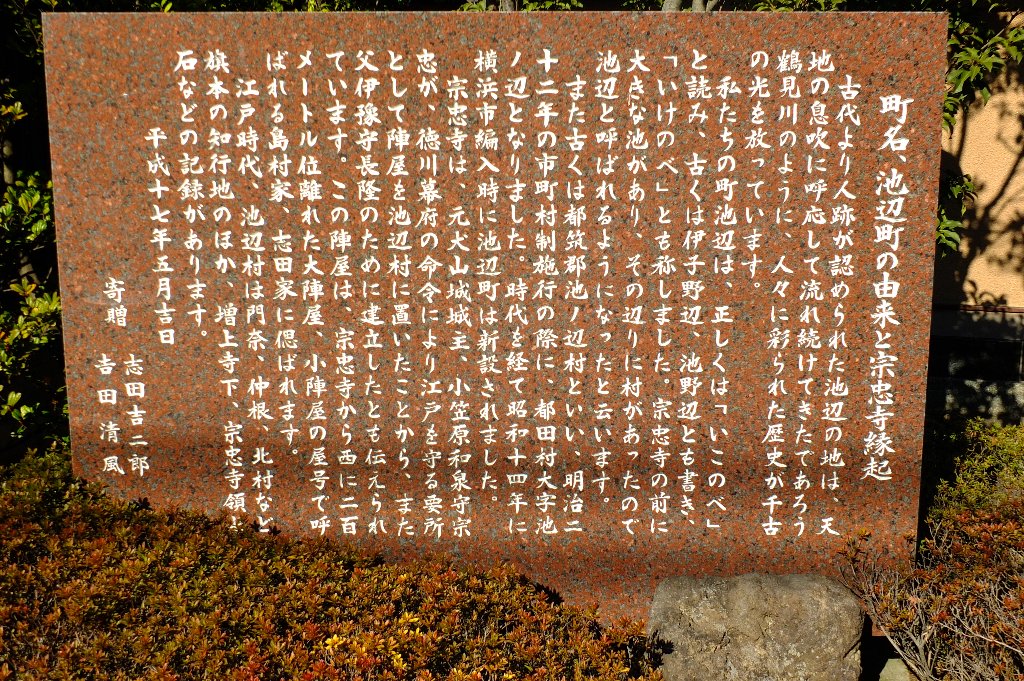 町名、池辺町の由来と宗忠寺縁起
古代より人跡が認められた池辺の地は、天
地の息吹に呼応して流れ続けてきたであろう
鶴見川のように、人々に彩られた歴史が千古
の光を放っています。
私たちの町池辺は、正しくは「いこのべ」
と読み、古くは伊子野辺、池野辺とも書き、
「いけのべ」とも称しました。宗忠寺の前に
大きな池があり、その辺りに村があったので
池辺と呼ばれるようになったと云います。
また古くは都筑郡池ノ辺村といい、明治二
十二年の市町村制施行の際に、都田村大字池
ノ辺となりました。時代を経て昭和十四年に
横浜市編入時に池辺町は新設されました。
宗忠寺は、元犬山城城主、小笠原和泉守宗
忠が、徳川幕府の命令により江戸を守る要所
として陣屋を池辺村に置いたことから、また
父伊豫守長隆のために建立したとも伝えられ
ています。この陣屋は、宗忠寺から西に二百
メートル位離れた大陣屋、小陣屋の屋号で呼
ばれる島村家、志田家に偲ばれます。
江戸時代、池辺村は門奈、仲根、北村など
旗本の知行地のほか、増上寺下、宗忠寺領十
石などの記録があります。
平成十七年五月吉日
寄贈 志田吉二郎
吉田清風